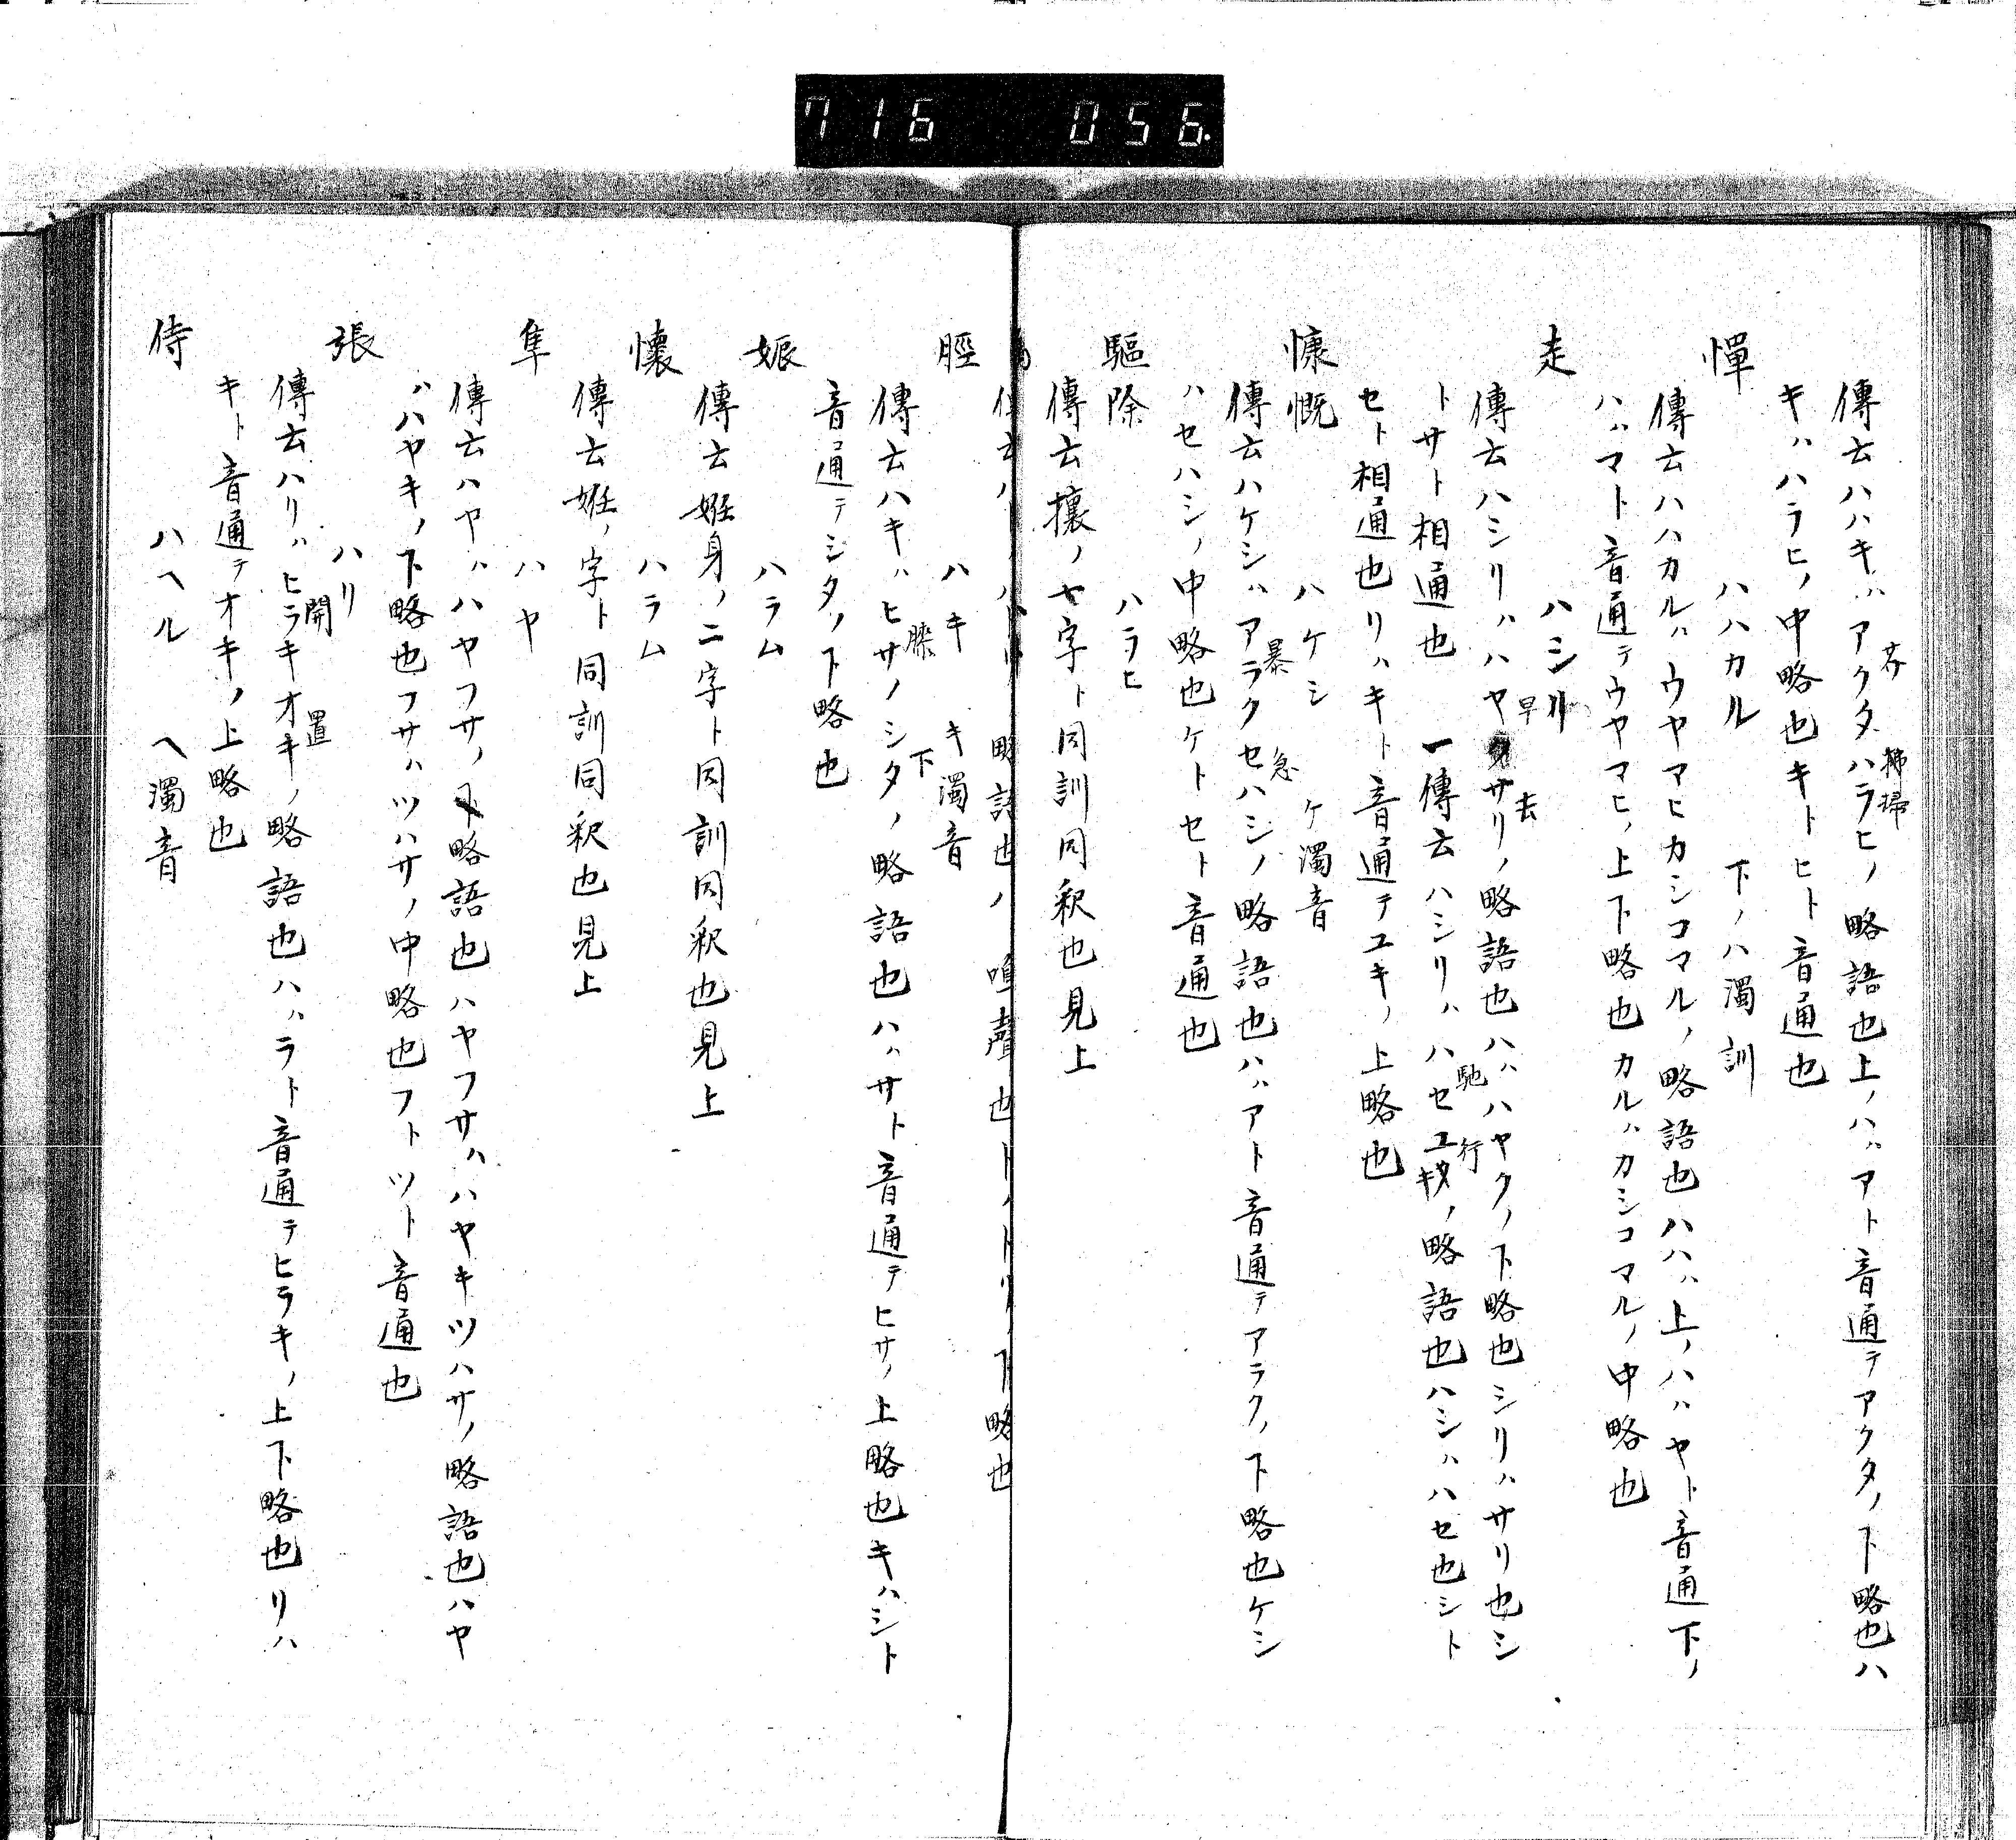 716 056.
傳云ハハキハアクタハラヒノ略語也上ノハハアト音通テアクタノ下略也ハ
芥 拂掃
キハハラヒノ中略也キトヒト音通也
憚 ハハカル 下ノハ濁訓
傳云ハハカルハウヤマヒカシコマルノ略語也ハハハ上ノハハヤト音通下ノ
ハハマト音通テウヤマヒノ上下略也カルハカシコマルノ中略也
走 ハシリ
早 去
傳云ハシリハハヤサリノ略語也ハハハヤクノ下略也シリハサリ也シ
トサト相通也 一傳云ハシリハハセユキノ略語也ハシハハセ也シト
馳 行
セト相通也リハキト音通テユキノ上略也
慷慨 ハケシ ケ濁音
暴 急
傳云ハケシハアラクセハシノ略語也ハハアト音通テアラクノ下略也ケシ
ハセハシノ中略也ケトセト音通也
驅除 ハラヒ
傳云攘ノ字ト同訓同釈也見上
略語也 喧聲也 下略也
脛 ハキ キ濁音
膝 下
傳云ハキハヒサノシタノ略語也ハハサト音通テヒサノ上略也キハシト
音通テシタノ下略也
娠 ハラム
傳云姙身ノ二字ト同訓同釈也見上
懐 ハラム
傳云姙ノ字ト同訓同釈也見上
隼 ハヤ
傳云ハヤハハヤフサノ略語也ハヤフサハハヤキツハサノ略語也ハヤ
ハハヤキノ下略也フサハツハサノ中略也フトツト音通也
張 ハリ
開 置
傳云ハリハヒラキオキノ略語也ハハラト音通テヒラキノ上下略也リハ
キト音通テオキノ上略也
侍 ハヘル ヘ濁音